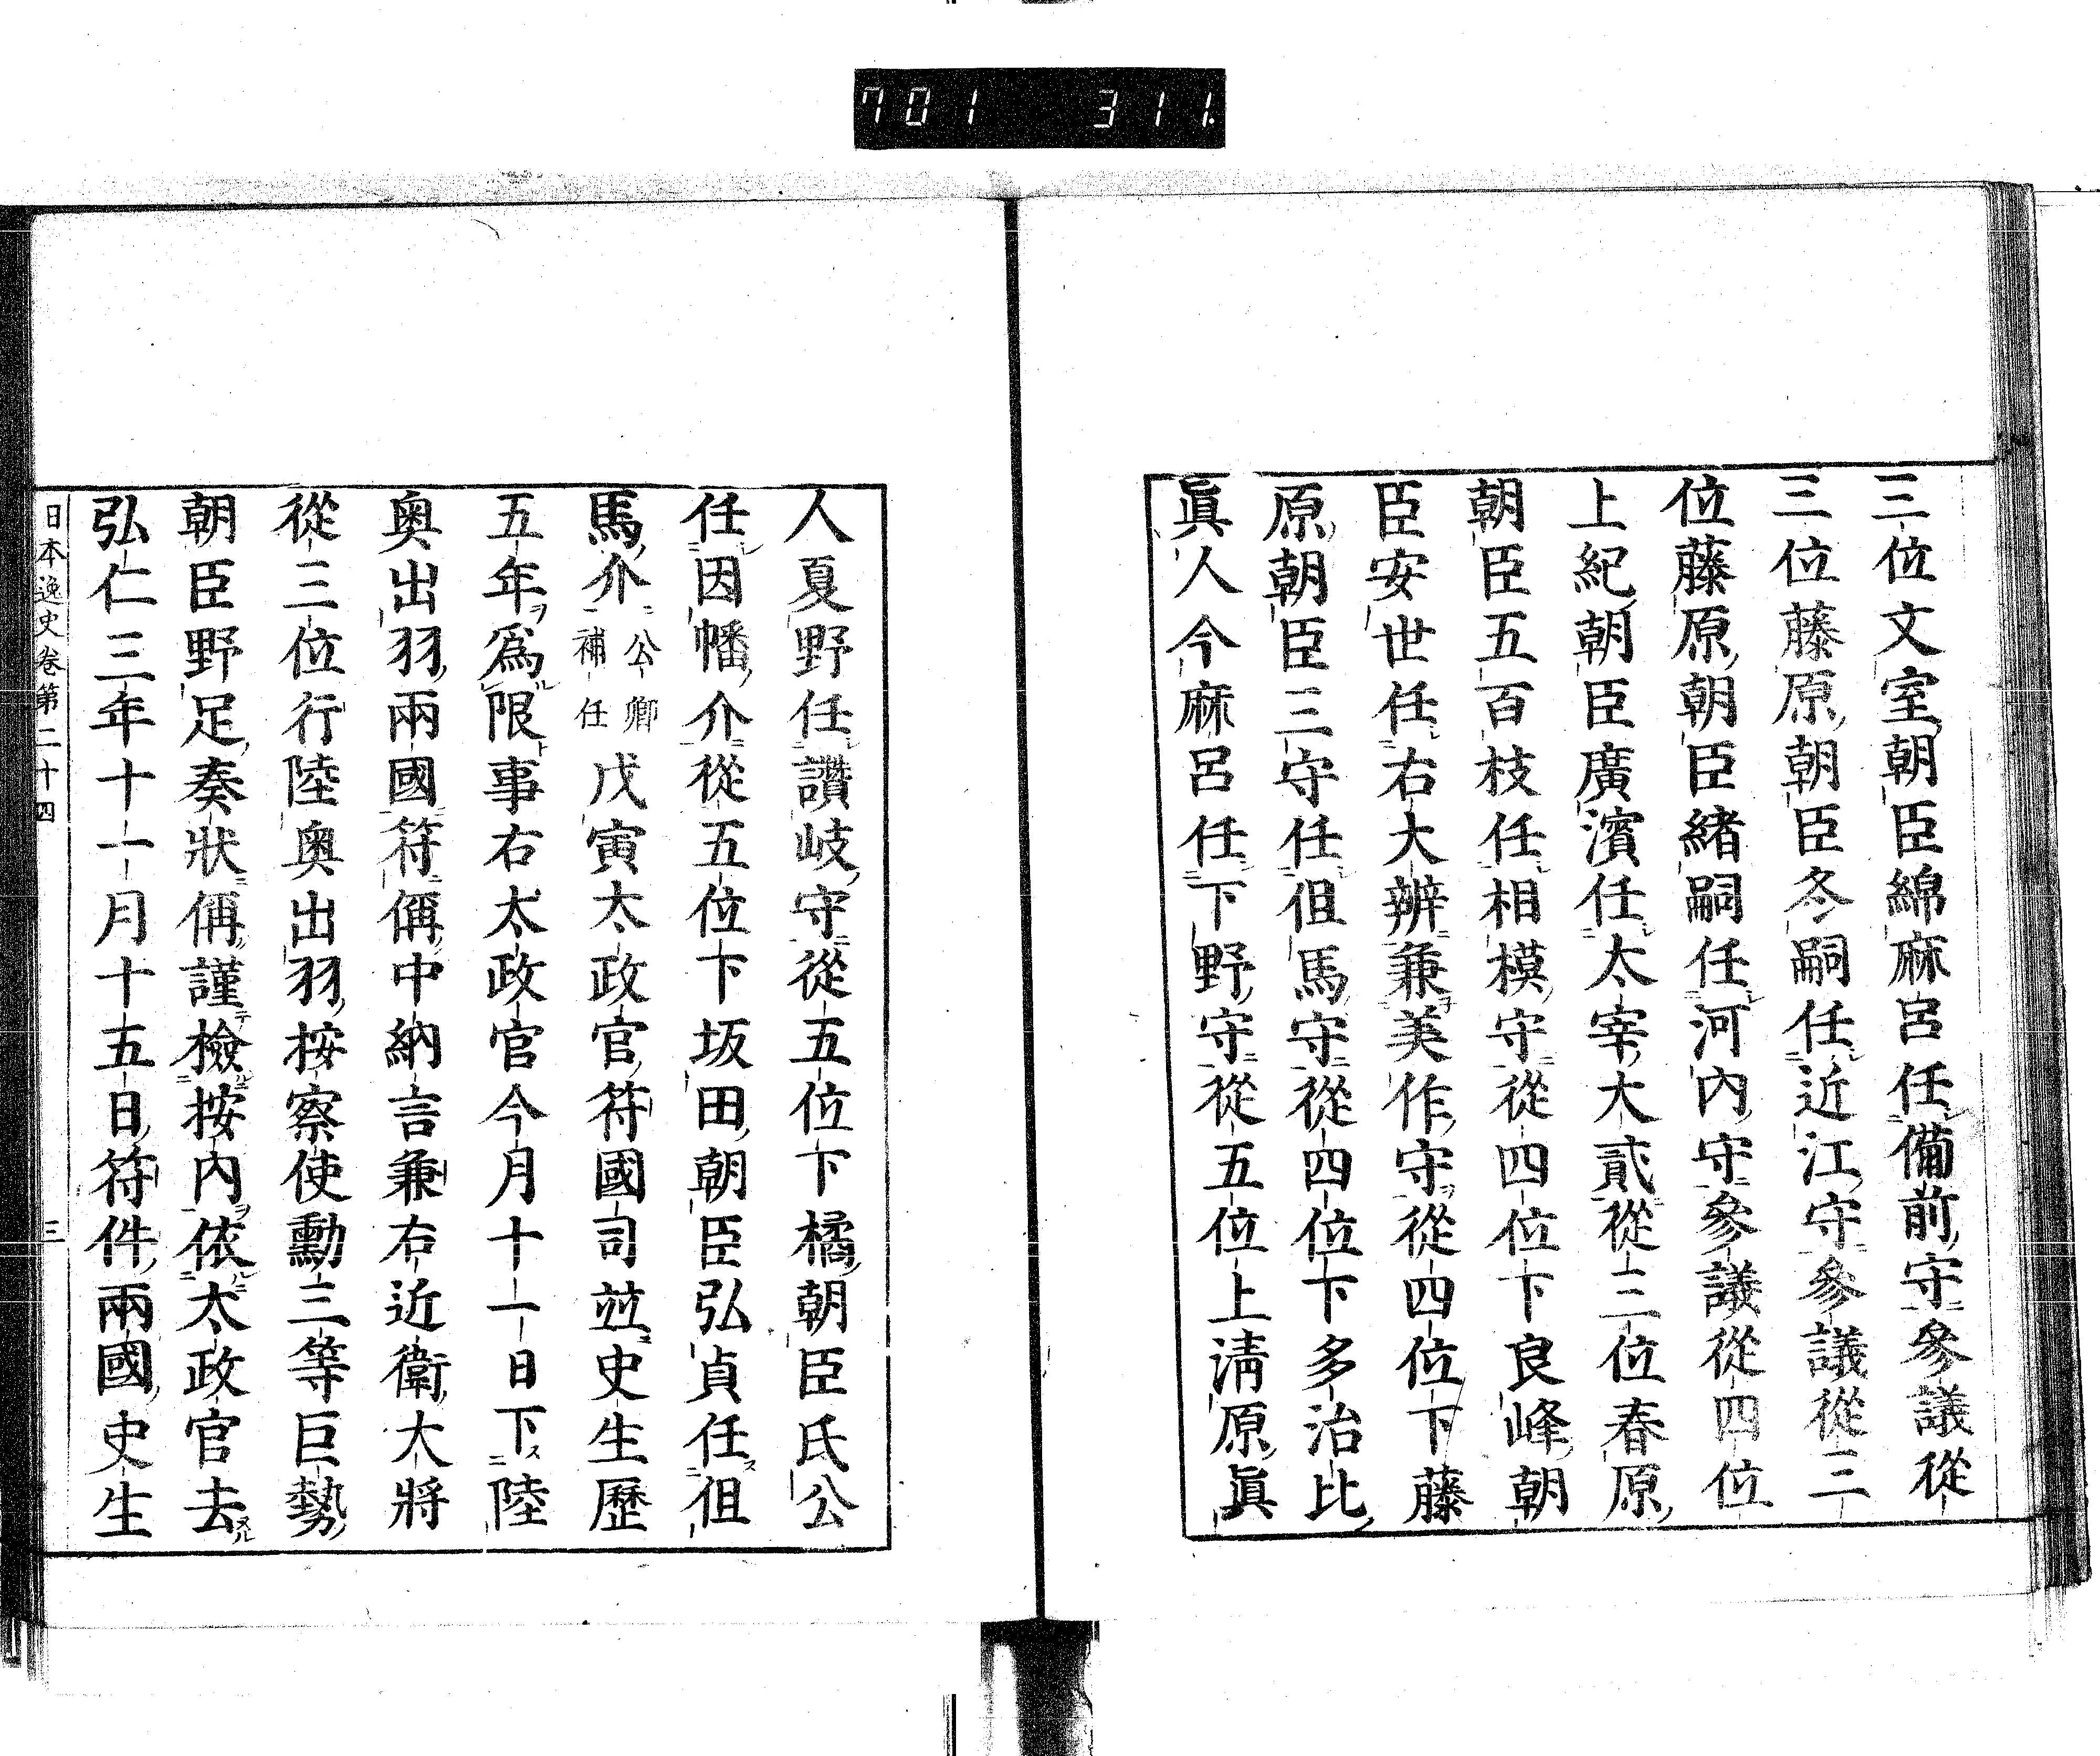 701 311
三位文室朝臣綿麻呂任備前守參議從
三位藤原朝臣冬嗣任近江守參議從三
位藤原朝臣緒嗣任河內守參議從四位
上紀朝臣廣濱任太宰大貳從三位春原
朝臣五百枝任相模守從四位下良峰朝
臣安世任右大辨兼美作守從四位下藤
原朝臣三守任伹馬守從四位下多治比
眞人今麻呂任下野守從五位上淸原眞
人夏野任讚岐守從五位下橘朝臣氏公
任因幡介從五位下坂田朝臣弘貞任伹
馬介公卿補任戊寅太政官符國司竝史生歷
五年爲限事右太政官今月十一日下陸
奧出羽兩國符偁中納言兼右近衞大將
從三位行陸奧出羽按察使勳三等巨勢
朝臣野足奏狀偁謹檢按內依太政官去
弘仁三年十一月十五日符件兩國史生
日本逸史卷第二十四 三